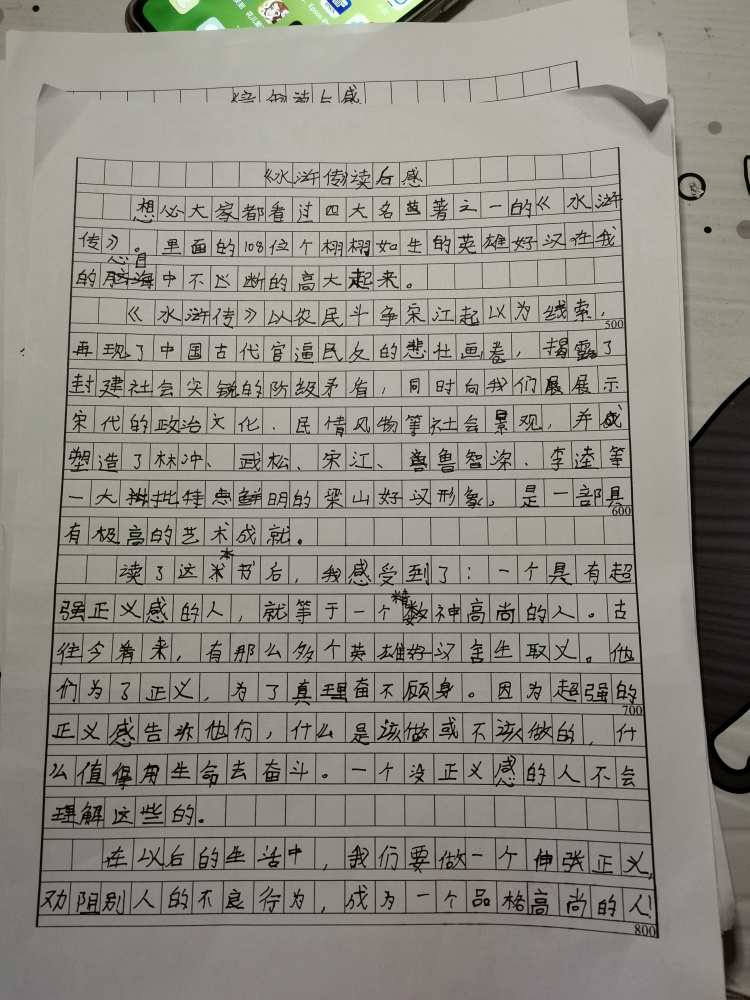 《水浒传》读后感
想必大家都看过四大名著之一的《水浒
传》。里面的108位个栩栩如生的英雄好汉在我
的心目中不断的高大起来。
《水浒传》以农民斗争宋江起以为线索,
再现了中国古代官逼民反的悲壮画卷,揭露了
封建社会尖锐的阶级矛盾,同时向我们展展示
宋代的政治文化、民情风物等社会景观,并成
塑造了林冲、武松、宋江、鲁智深、李逵等
一大批特鲜明的梁山好汉形象,是一部具
有极高的艺术成就。
读了这本书后,我感受到了:一个具有超
强正义感的人,就等于一个精神高尚的人。古
往今看来,有那么多个英雄好汉舍生取义。他
们为了正义,为了真理奋不顾身。因为超强的
正义感告诉他们,什么是该做或不该做的,什
么值得用生命去奋斗。一个没正义感的人不会
理解这些的。
在以后的生活中,我们要做一个伸张正义,
劝阻别人的不良行为,成为一个品格高尚的人!
500
600
700
800